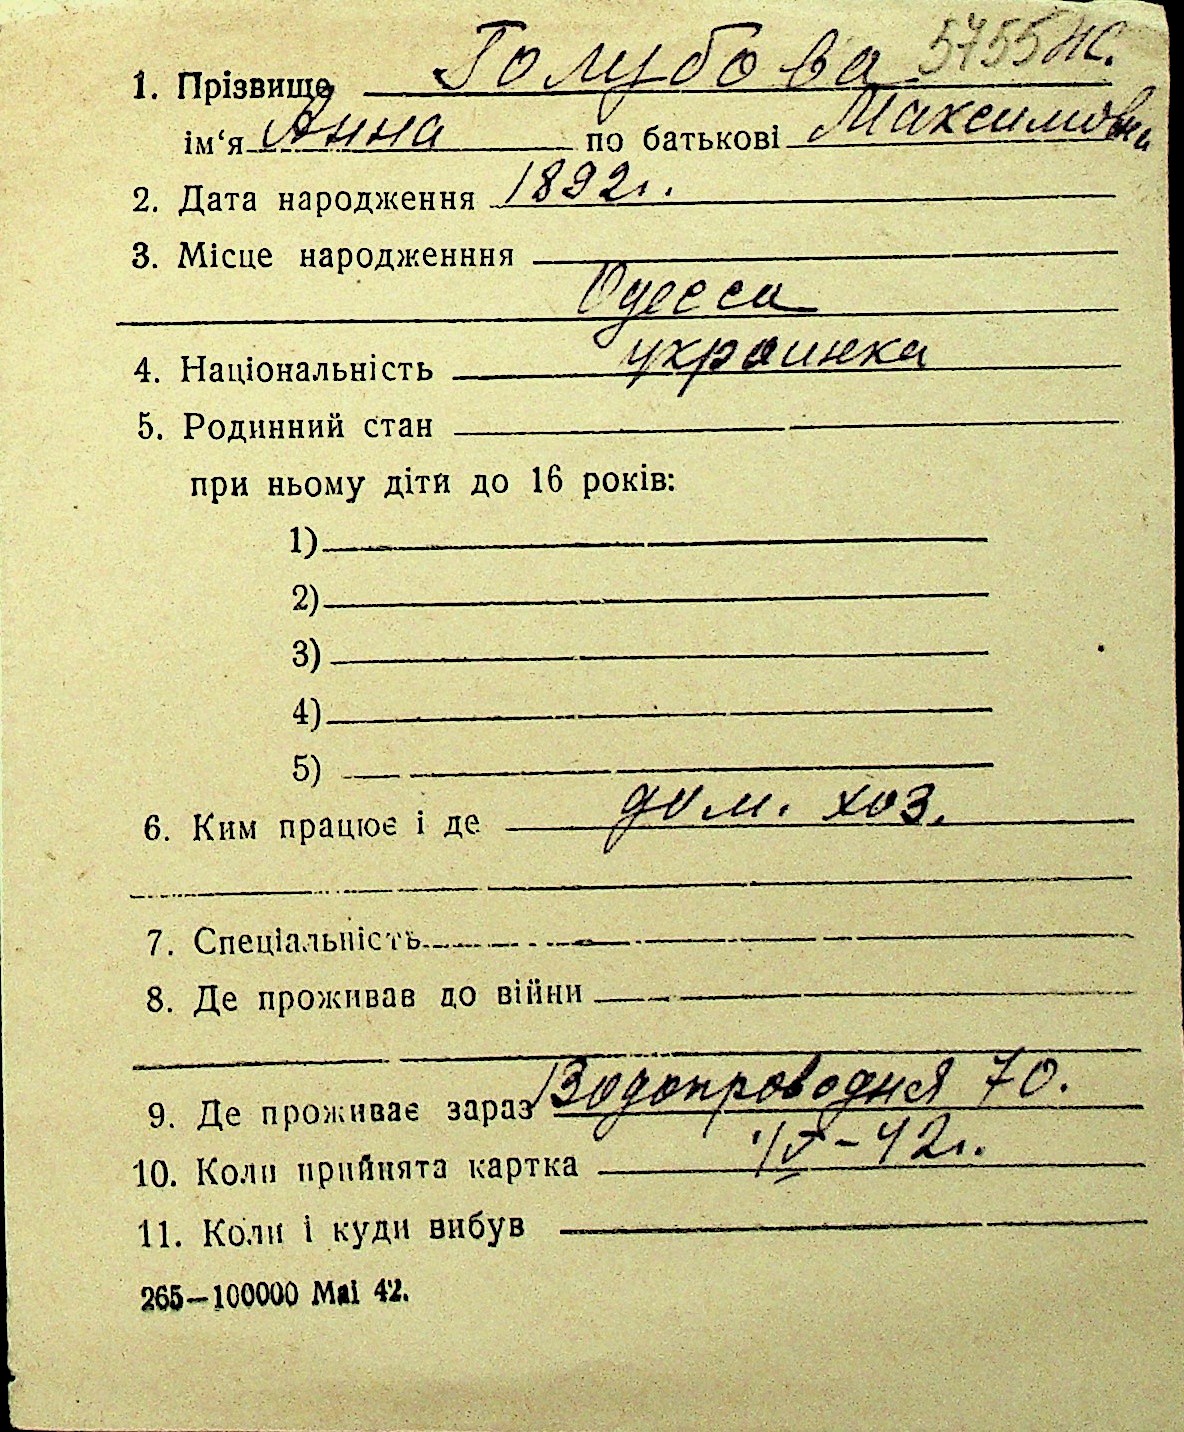 5755 Ж.
1. Прізвище Голубова
ім‘я Анна по батькові Максимовна
2. Дата народження 1892г.
3. Місце народженння
Одесса
4. Національність украинка
5. Родинний стан
при ньому діти до 16 років:
1)
2)
3)
4)
5)
6. Ким працює і де дом. хоз.
7. Спеціальність
8. Де проживав до війни
9. Де проживає зараз Водопроводная 70.
10. Коли прийнята картка -42г.
11. Коли і куди вибув
265—100000 Mai 42.